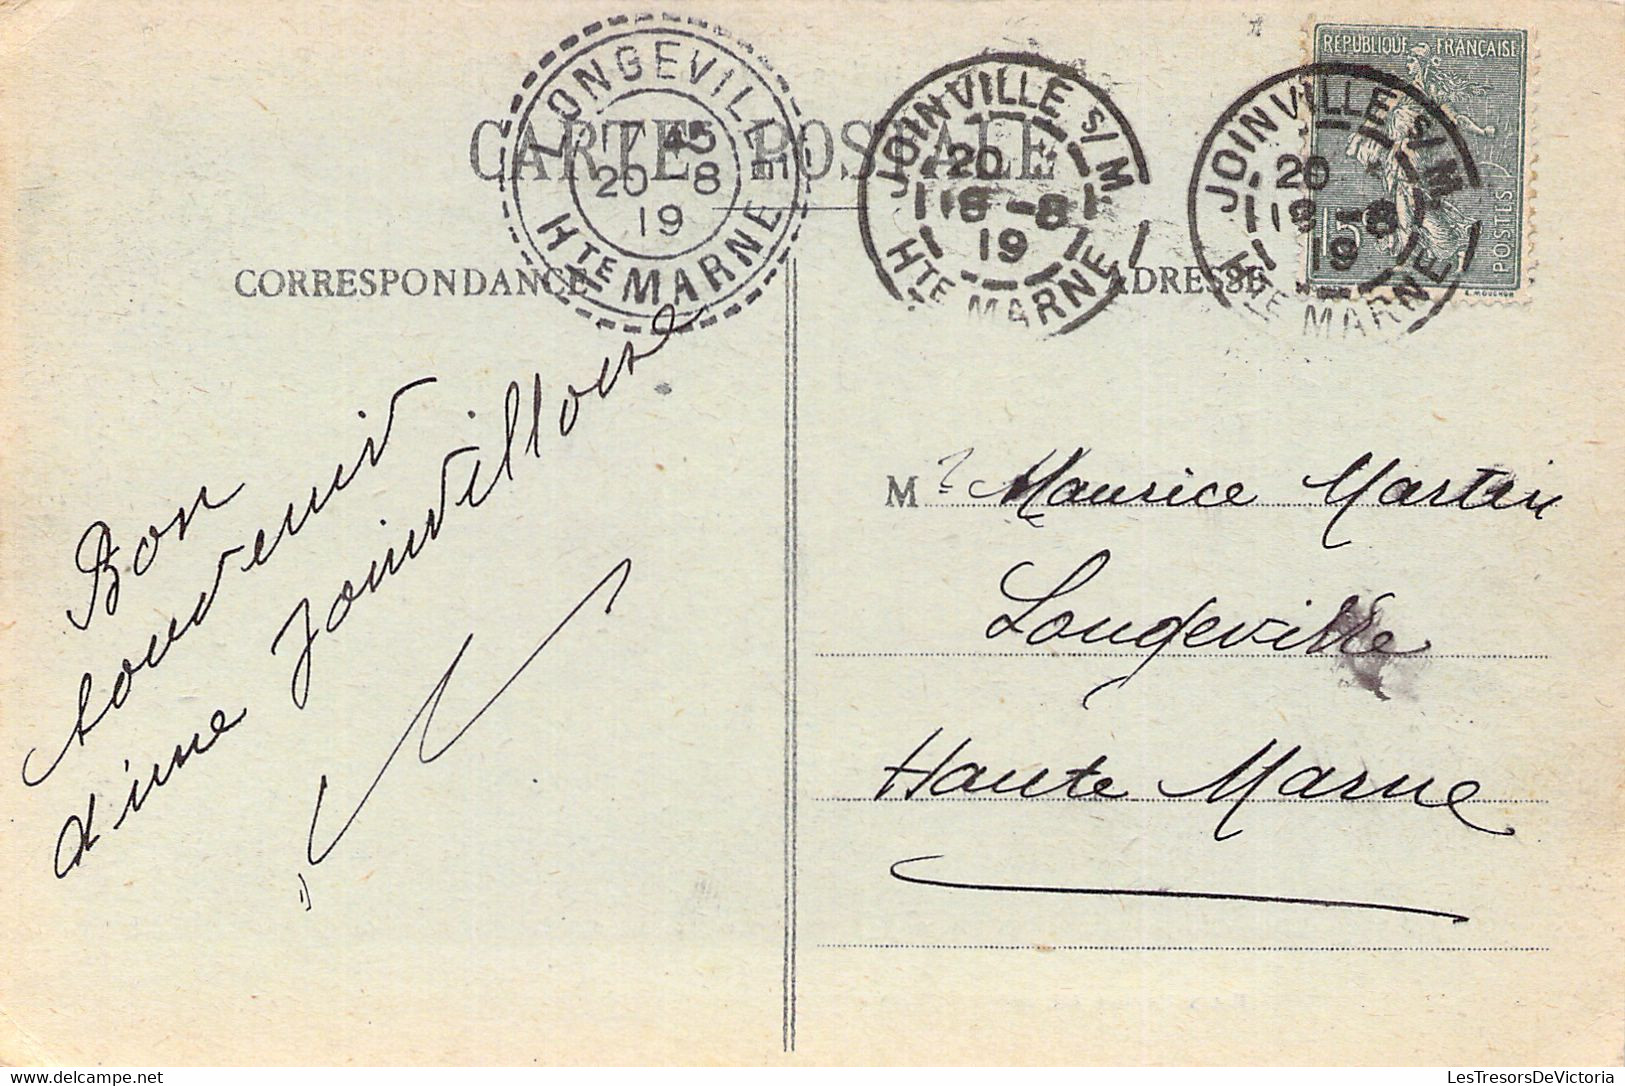 CARTE POSTALE
LONGEVILLE
7 45
20 8
19
Hte MARNE
JOINVILLE S/M
20
18-8
19
Hte MARNE
JOINVILLE S/M
20
18-8
19
Hte MARNE
REPUBLIQUE FRANÇAISE
15
POSTES
L.MOUCHON
CORRESPONDANCE
ADRESSE
Bon
souvenir
d'une Joinvilloise
Mr Maurice Martin
Longeville
Haute Marne
delcampe.net
LesTresorsDeVictoria